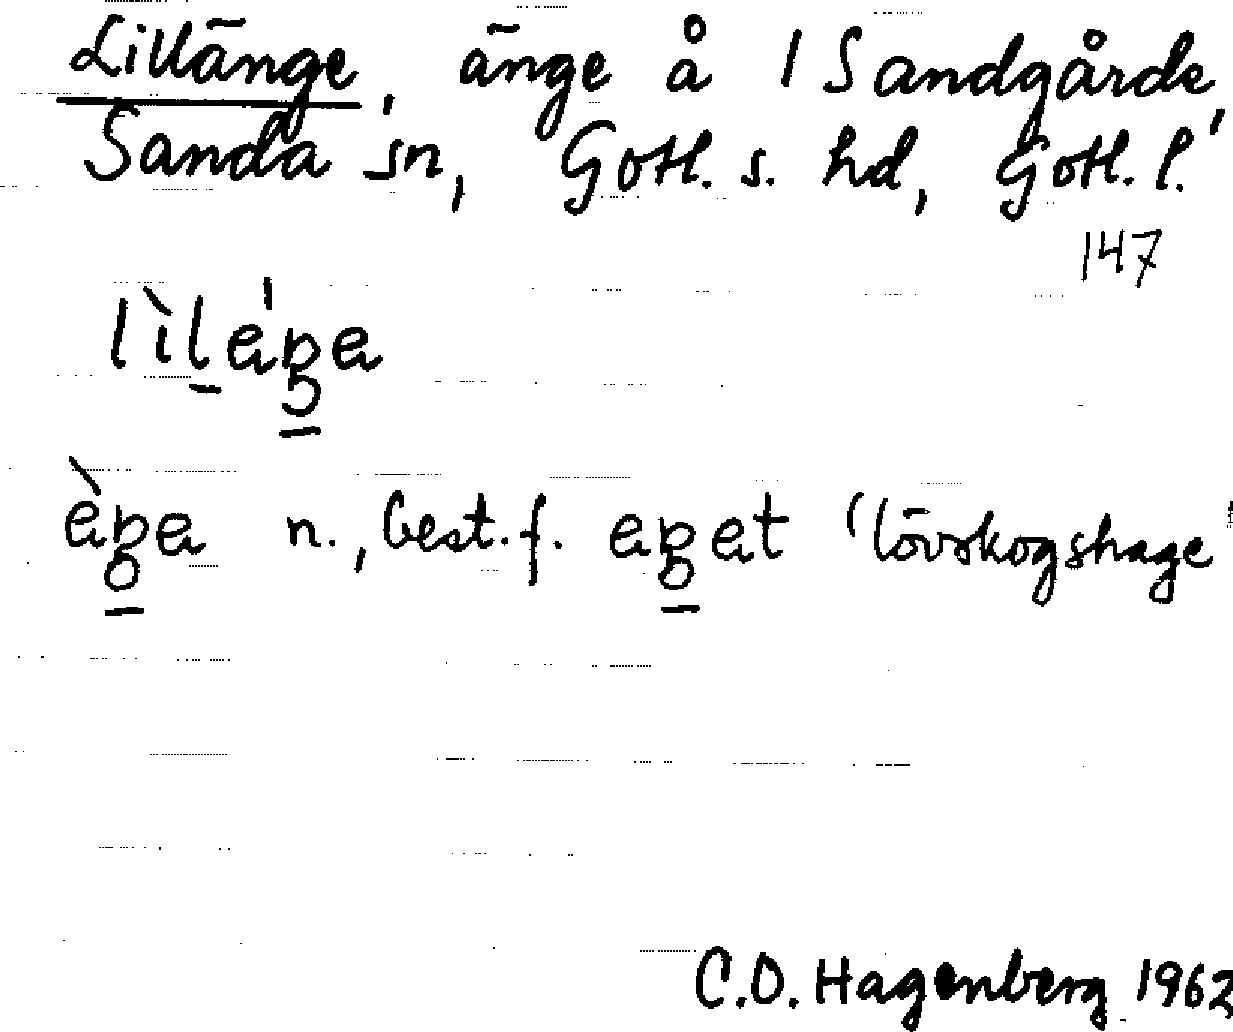 Lillänge, änge å 1 Sandgårde,
Sanda sn, Gotl. s. hd, Gotl. l.
147
n., best. f. 'lövskogshage'
C.O. Hagenberg 1962